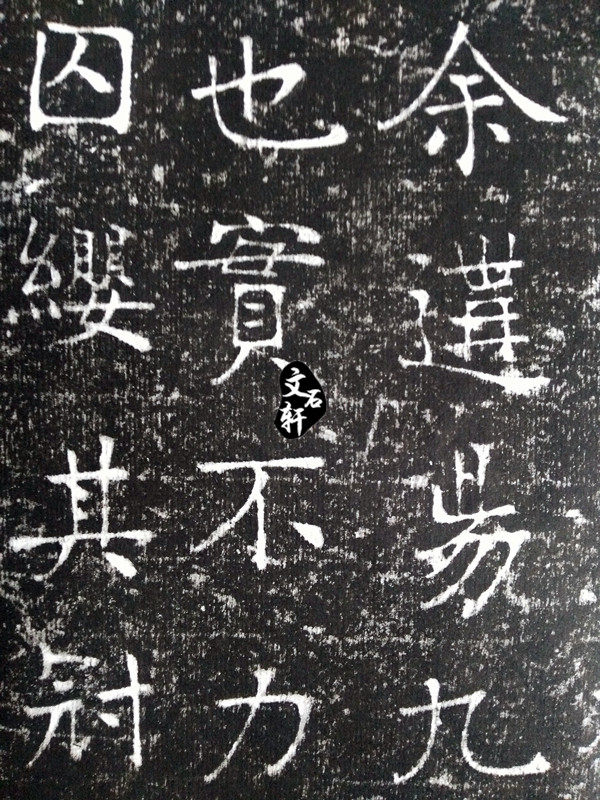 余遘昜九
也實不力
囚纓其冠
文石轩